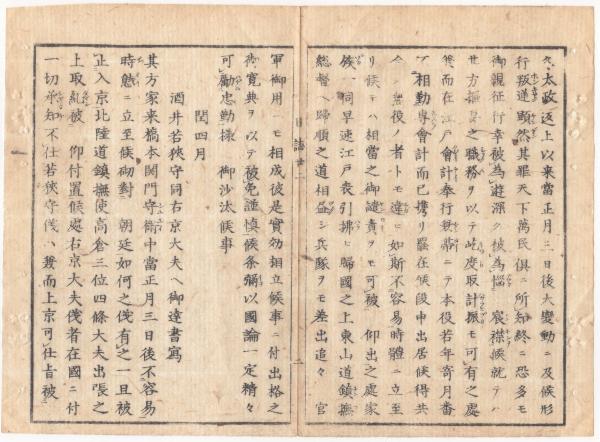 太政返上以来當正月三日後大變動ニ及候形
行叛逆顕然其罪天下萬民俱ニ所知終ニ恐多モ
御親征行幸被為遊深ク被為悩宸襟候就テハ
其方撫之職務ヲ以テ屹度取計振モ可有之處
無而在江戸會計奉行ニテ本役若年寄月番
相勤専會計而已携リ罷在候段申出居候得共
後ノ者トモ違ヒ如斯不容易時體ニ立至
リ候テハ相當之御譴責ヲモ可被仰出之處家
候一同早速江戸表引拂ヒ歸國之上東山道鎮撫
總督ヘ歸順之道相立シ兵隊ヲモ差出追々官
軍御用ニモ相成彼是實効相立候事ニ付出格之
御寛典ヲ以テ被免謹慎候条猶以國論一定精々
可勵忠勤様御沙汰候事
閏四月
酒井若狭守同右京大夫ヘ御達書寫
其方家来橋本関門守衛中當正月三日後不容易
時態ニ立至候砌對朝廷如何之儀有之一旦被
止入京北陸道鎮撫使高倉三位四條大夫出張之
上取糺被仰付置候處右京大夫儀者在國ニ付
一切承知不仕若狭守儀ハ幾而上京可仕旨被
日誌廿二